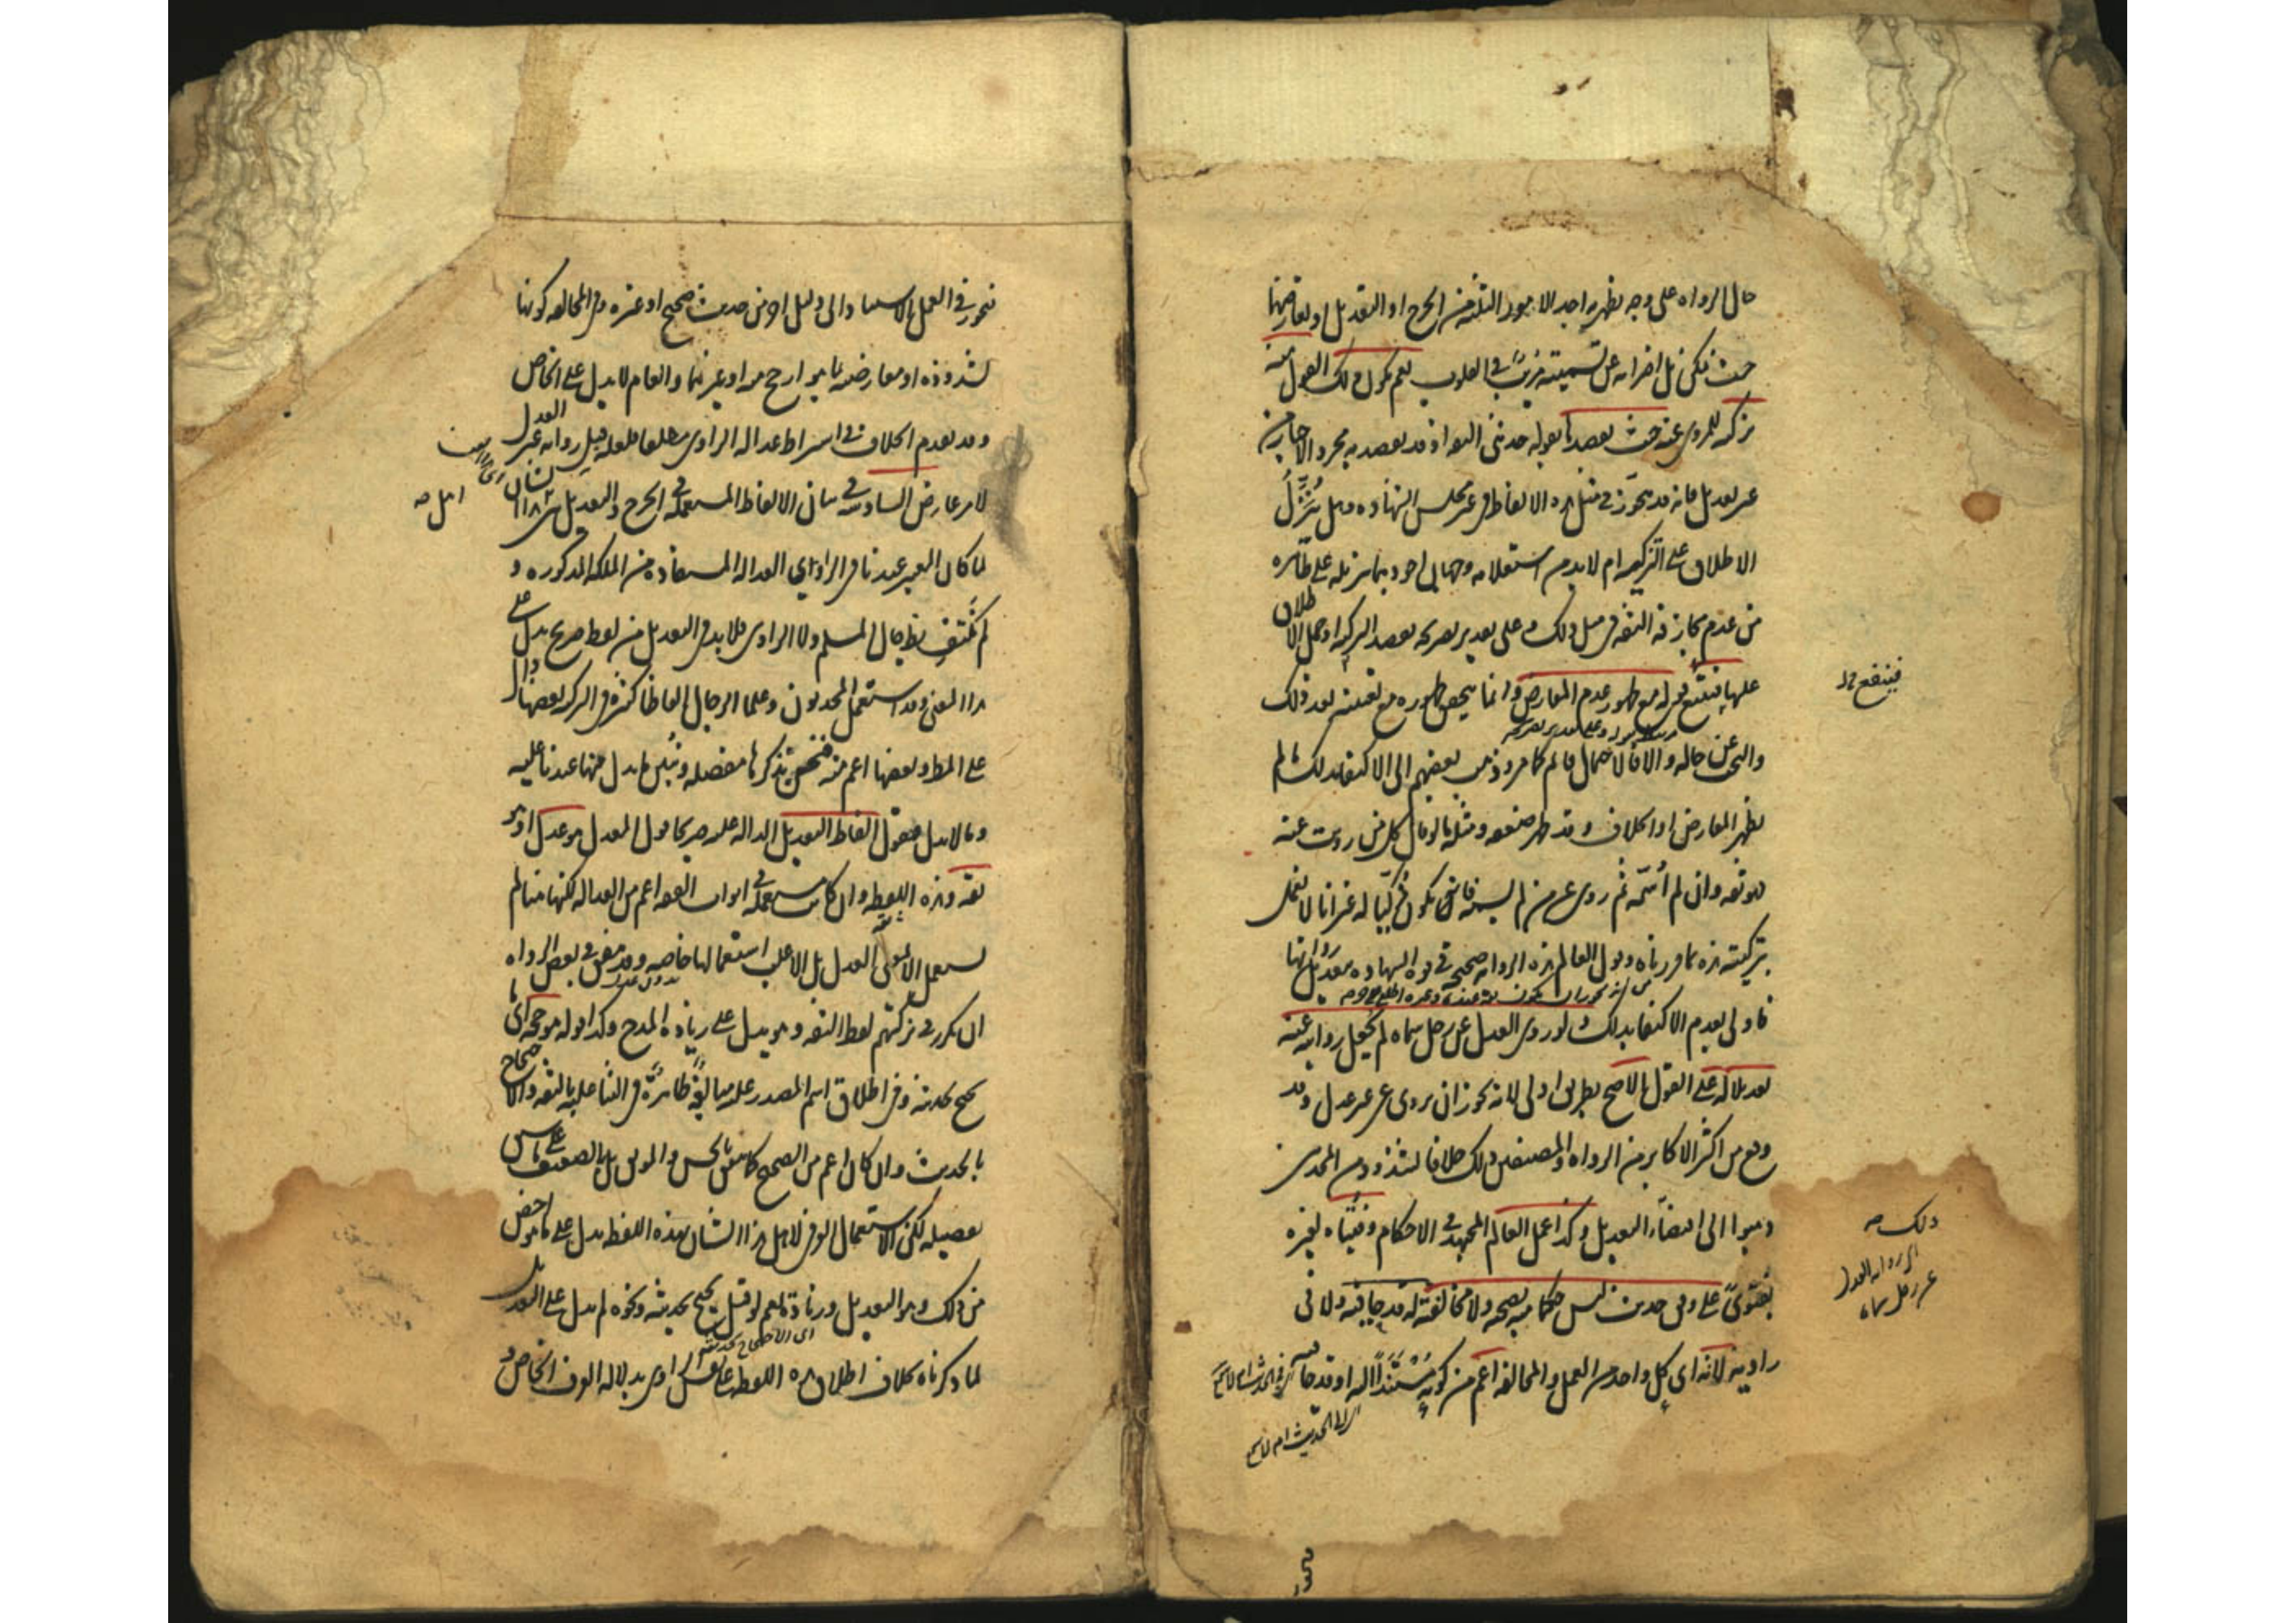 حال الرواه على وجه يظهر به احد الامور الثلثه من الجرح او التعديل او تعارضها
حيث يمكن بل اضرابه عن تسميته مريبا في القلوب نعم يكون ذلك القول منه
تزكيه للمروى عنه حيث يقصدها بقوله حدثنى الثقه اذ قد يقصد به مجرد الاخبار من
غير تعديل فانه قد يتجوز في مثل هذه الالفاظ في غير مجلس الشهاده وهل يُنَزَّل
الاطلاق على التزكيه ام لا بد من استعلامه وجهان اجودهما تنزيله على ظاهره
من عدم مجازفه الثقه في مثل ذلك وعلى تقدير تصريحه بقصد التزكيه او حمل الاطلاق
عليها ينتفع بقوله مع ظهور عدم المعارض وانما يتحقق ظهوره مع تعيينه بعد ذلك
والبحث عن حاله والا فالاحتمال قائم كما مر وذهب بعضهم الى الاكتفاء بذلك ما لم
يظهر المعارض او الخلاف وقد ظهر ضعفه ومثله ما لو قال كل من رويت عنه
فهو ثقه وان لم اسمه ثم روى عن من لم يسمه فانه يكون مزكيا له غير انا لا نعمل
بتزكيته هذه لما قررناه وقول العالم هذه الروايه صحيحه في قوه الشهاده بتعديل رواتها
فاولى بعدم الاكتفاء بذلك ولو روى العدل عن رجل سماه لم يجعل روايته عنه
تعديلا له على القول الاصح بطريق اولى لانه يجوز ان يروى عن غير عدل وقد
وقع من اكثر الاكابر من الرواه والمصنفين ذلك خلافا لشذوذ من المحدثين
ذهبوا الى اقتضاء التعديل وكذا عمل العالم المجتهد في الاحكام وفتياه لغيره
بفتوى على وفق حديث ليس حكما منه بصحته ولا مخالفته له قدحا فيه ولا في
راويه لانه اى كل واحد من العمل والمخالفه اعم من كونه مُسْتَنَدا اليه او قدحا فيه
فينتفع خ
ذلك صه
اى روايه العدل
عن رجل سماه
نحوز في العمل الاستناد الى دليل اخر من حديث صحيح او غيره وفى المخالفه كونها
لشذوذه او معارضته بما هو ارجح منه او غيرهما والعام لا يدل على الخاص
وقد تقدم الخلاف في اشتراط عداله الراوى مطلقا فلعله قبل روايه غير العدل
لامر عارض السادسه في بيان الالفاظ المستعمله في الجرح والتعديل بين اهل هذا الشان
لما كان المعتبر عندنا في الراوى العداله المستفاده من الملكه المذكوره و
لم نكتف بظاهر حال المسلم ولا الراوى فلا بد في التعديل من لفظ صريح يدل على
هذا المعنى وقد استعمل المحدثون وعلماء الرجال الفاظا كثيره في التزكيه بعضها دال
على المط وبعضها اعم منه فنحن نذكرها مفصله ونبين ما يدل منها عندنا عليه
وما لا يدل فنقول الفاظ التعديل الداله عليه صريحا قول المعدل هو عدل او هو
ثقه وهذه اللفظه وان كانت مستعمله في ابواب الفقه اعم من العداله لكنها هنا لم
تستعمل الا بمعنى العدل بل الاغلب استعمالها خاصه وقد يتفق في بعض الرواه
ان يكرر في تزكيتهم لفظ الثقه وهو يدل على زياده المدح وكذا قوله هو حجه اى ما
يحتج بحديثه وفى اطلاق اسم المصدر عليه مبالغه ظاهره في الثناء عليه بالثقه والاحتجاج
بالحديث وان كان اعم من الصحيح كما يتفق بالحسن والموثق بل بالضعيف على ما سبق
تفصيله لكن الاستعمال العرفى لاهل هذا الشان لهذه اللفظه يدل على ما هو اخص
من ذلك وهو التعديل وزياده نعم لو قيل يحتج بحديثه ونحوه لم يدل على التعديل
لما ذكرناه بخلاف اطلاق هذه اللفظه على نفس الراوى بدلاله العرف الخاص و
اهل صه